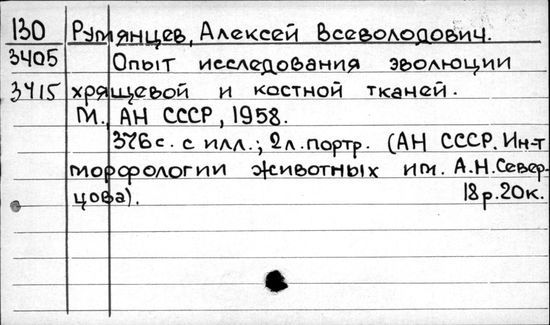 130 Румянцев, Алексей Всеволодович.
3405 Опыт исследования эволюции
3415 хрящевой и костной тканей.
М., АН СССР, 1958.
376 с. с илл.; 2 л. портр. (АН СССР. Ин-т
морфологии животных им. А.Н. Север-
цова). 18 р. 20 к.